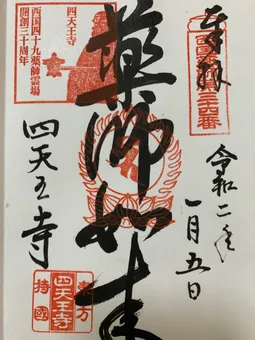 奉拝
令和二年
一月五日
薬師如来
四天王寺
四天王寺
西国四十九薬師霊場
開創三十周年
東方
四天王寺
持國